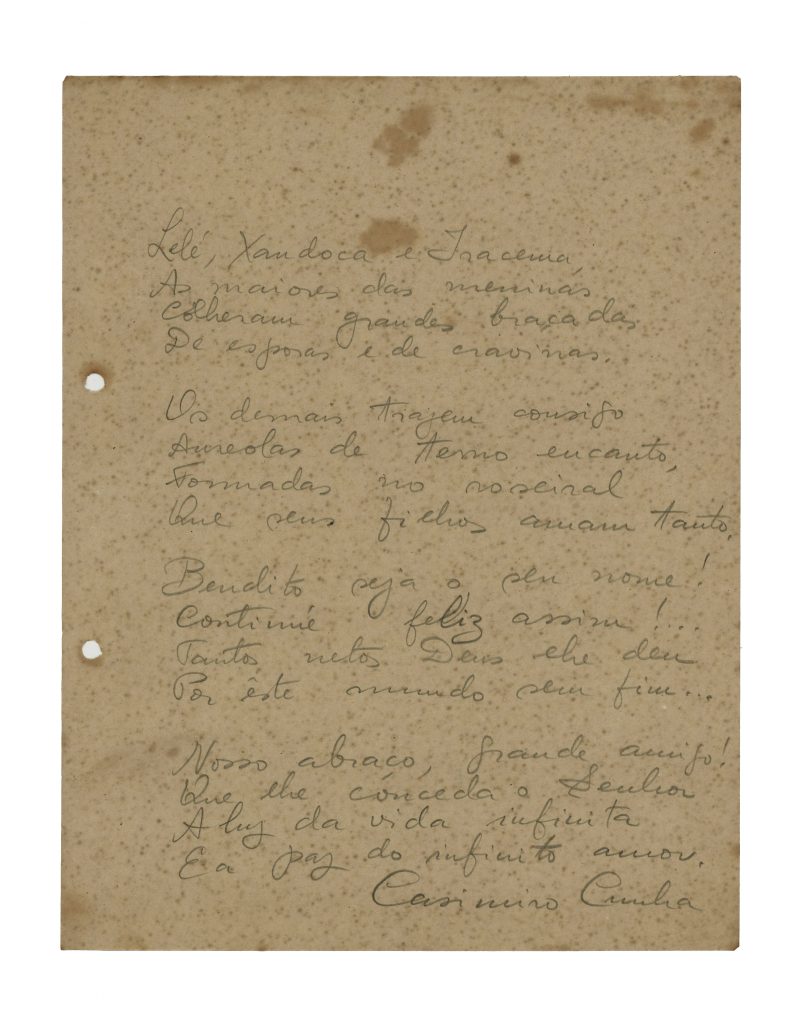 Lelé, Xandoca e Iracema,
As maiores das meninas
Colheram grandes braçadas
De esporas e de cravinas.
Os demais trazem consigo
Aureolas de terno encanto,
Formadas no roseiral
Que seus filhos amam tanto.
Bendito seja o seu nome!
Continúe feliz assim!...
Tantos netos Deus lhe deu
Por êste mundo sem fim...
Nosso abraço, grande amigo!
Que lhe conceda o Senhor
A luz da vida infinita
E a paz do infinito amor.
Casimiro Cunha